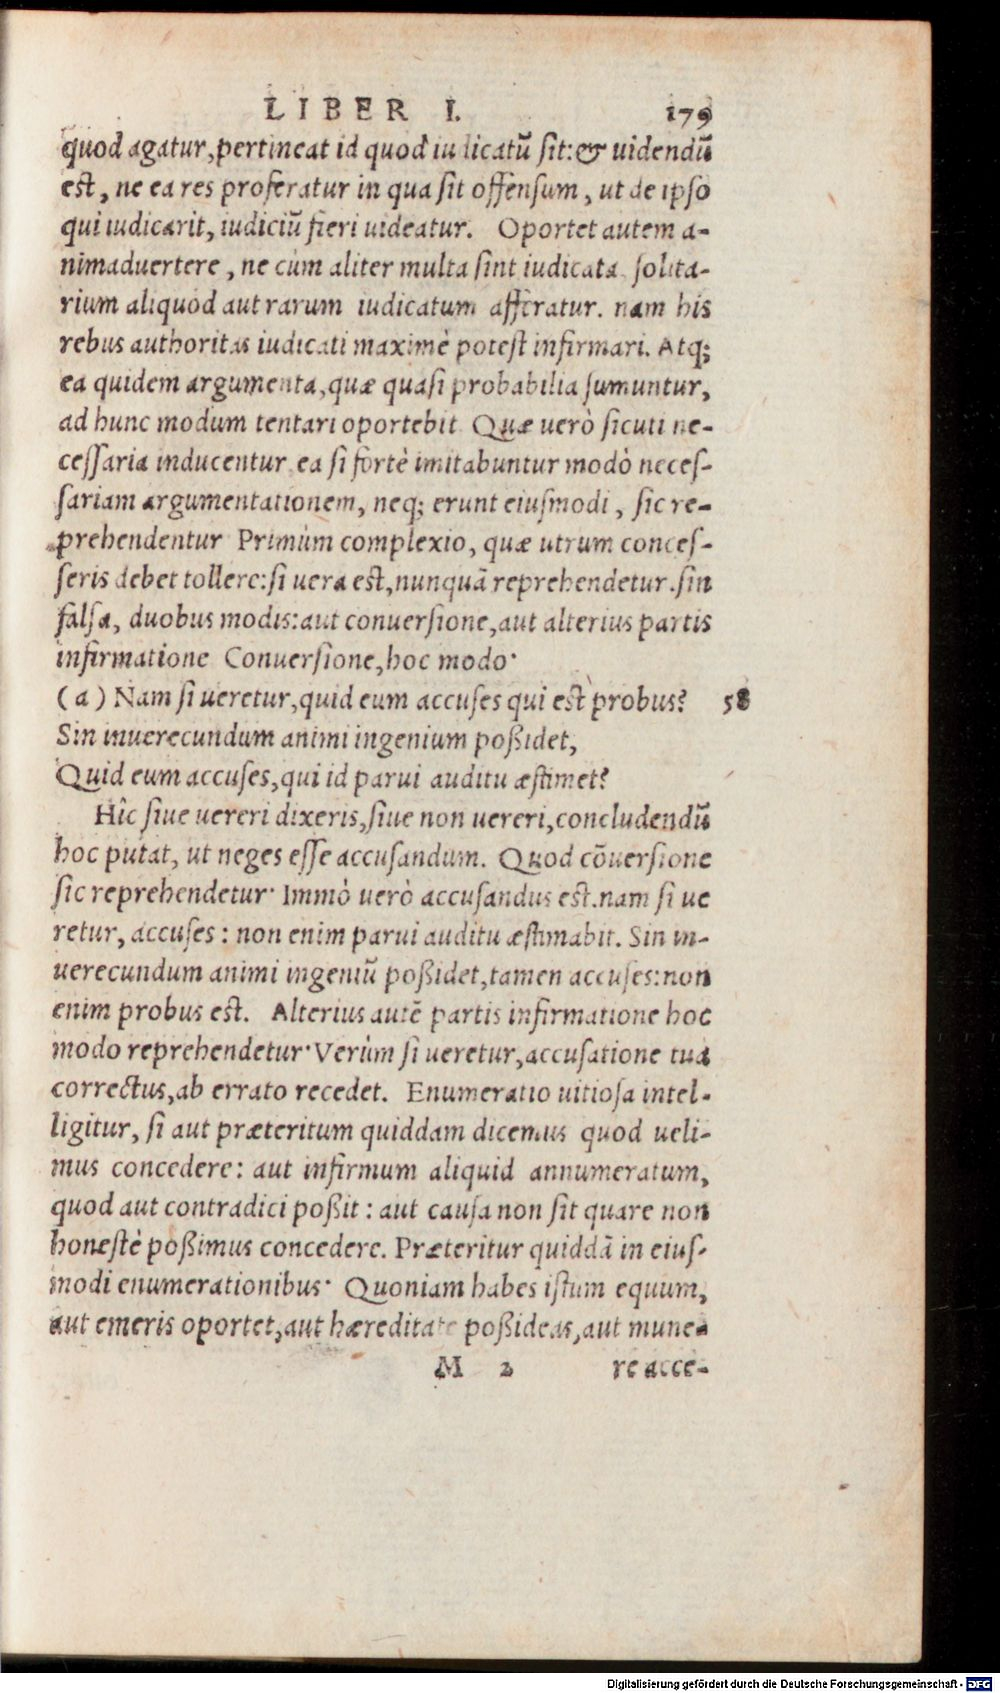 LIBER I. 179
quod agatur, pertineat id quod iudicatũ sit: & uidendũ
est, ne ea res proferatur in qua sit offensum, ut de ipso
qui iudicarit, iudiciũ fieri uideatur. Oportet autem a-
nimaduertere, ne cùm aliter multa sint iudicata solita-
rium aliquod aut rarum iudicatum afferatur. nam his
rebus authoritas iudicati maximè potest infirmari. Atq;
ea quidem argumenta, quæ quasi probabilia sumuntur,
ad hunc modum tentari oportebit Quæ uerò sicuti ne-
cessaria inducentur ea si fortè imitabuntur modò neces-
sariam argumentationem, neq; erunt eiusmodi, sic re-
prehendentur Primùm complexio, quæ utrum conces-
seris debet tollere: si uera est, nunquã reprehendetur. sin
falsa, duobus modis: aut conuersione, aut alterius partis
infirmatione Conuersione, hoc modo·
(a) Nam si ueretur, quid eum accuses qui est probus? 58
Sin inuerecundum animi ingenium poßidet,
Quid eum accuses, qui id parui auditu æstimet?
Hîc siue uereri dixeris, siue non uereri, concludendũ
hoc putat, ut neges esse accusandum. Quod cõuersione
sic reprehendetur· Immò uerò accusandus est. nam si ue
retur, accuses: non enim parui auditu æstimabit. Sin in-
uerecundum animi ingeniũ poßidet, tamen accuses: non
enim probus est. Alterius autẽ partis infirmatione hoc
modo reprehendetur· Verùm si ueretur, accusatione tua
correctus, ab errato recedet. Enumeratio uitiosa intel-
ligitur, si aut præteritum quiddam dicemus quod ueli-
mus concedere: aut infirmum aliquid annumeratum,
quod aut contradici poßit: aut causa non sit quare non
honestè poßimus concedere. Præteritur quiddã in eius-
modi enumerationibus· Quoniam habes istum equum,
aut emeris oportet, aut hæreditate poßideas, aut mune-
M 2 re acce-
Digitalisierung gefördert durch die Deutsche Forschungsgemeinschaft - DFG